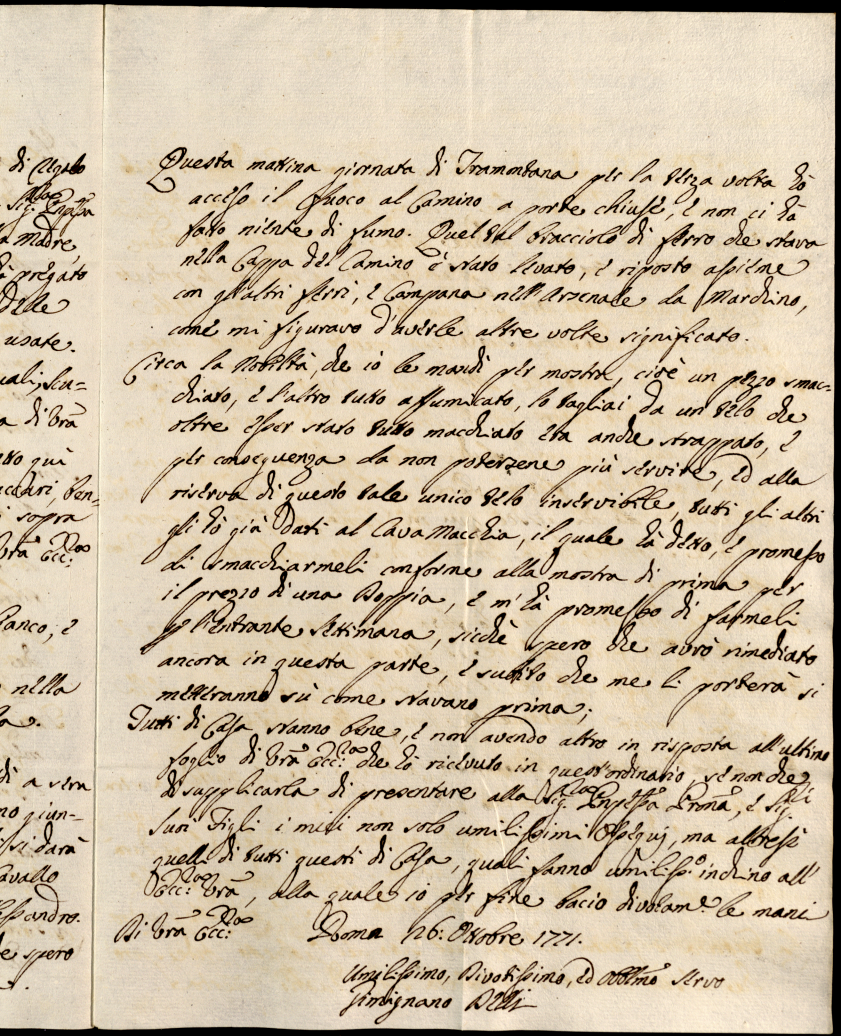 di Agab
Sig.ra Pnpessa
a Madre
di pregato
Delle
usate.
uali, scu=
a di Vrã
tto quà
ben=
sopra
Vrã Ecc:za
ianco, è
nella
la.
di a sera
no giun=
si darà
avallo
lessandro.
e spero
Questa mattina giornata di Tramontana per la terza volta hò
acceso il fuoco al Camino a porte chiuse, è non ci hà
fatto niente di fumo. Quel tal bracciolo di ferro che stava
nella Cappa del Camino è stato levato, è riposto assieme
con gl'altri ferri, è Campana nell'Arsenale da Marchino,
come mi figuravo d'averle altre volte significato.
Circa la Nobiltà, che io le mandi per mostra, cioè un pezzo smac=
chiato, è l'altro tutto affumicato, lo tagliai da un telo che
oltre esser stato tutto macchiato era anche strappato, è
per conseguenza da non potersene più servire, ed alla
riserva di questo tale unico telo inservibile, tutti gli altri
gli hò già dati al CavaMacchia, il quale hà detto, è promesso
di smacchiarmeli conforme alla mostra di prima per
il prezzo di una Doppia, è m'hà promesso di farmeli
p l'Entrante Settimana, sicchè spero che avrò rimediato
ancora in questa parte, è subito che me li porterà si
metteranno sù come stavano prima;
Tutti di Casa stanno bene, è non avendo altro in risposta all'ultimo
foglio di Vrã Ecc:za che hò ricevuto in quest'ordinario, senonche
di supplicarla di presentare alla Sig.ra Pnpessa Pronã, è Sig.ri
suoi Figli i miei non solo umilissimi Ossequj, ma altresì
quelli di tutti questi di Casa, quali fanno umiliss.o inchino all'
Ecc:za Vrã, alla quale io per fine bacio divotam.e le mani
Di Vrã Ecc:za Roma 26: Ottobre 1771.
Umilissimo, Divotissimo, ed Obblmõ Servo
Gimignano Belli